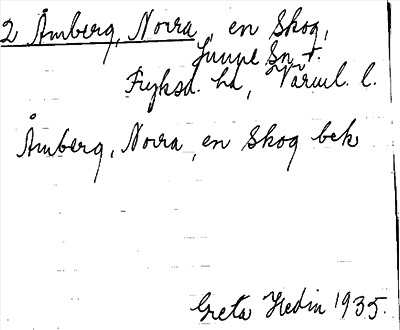 2 Åmberg, Norra, en Skog,
Sunne Sn t.
Fryksd. hd, Värml. l.
Åmberg, Norra, en Skog bek
Greta Hedin 1935.